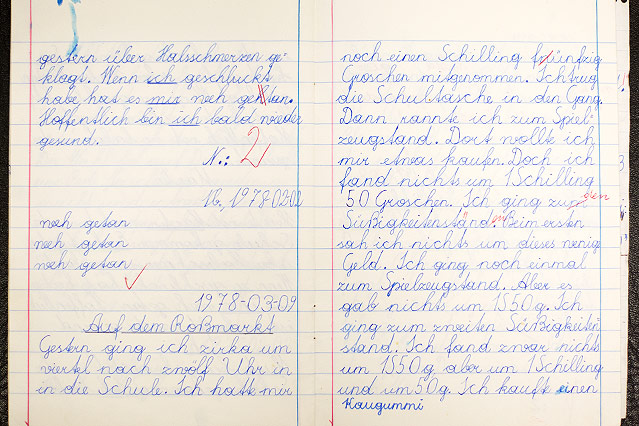 gestern über Halsschmerzen ge-
klagt. Wenn ich geschluckt
habe hat es mir weh getan.
Hoffentlich bin ich bald wieder
gesund.
N.: 2
16., 1978-02-02
weh getan
weh getan
weh getan
1978-03-09
Auf dem Roßmarkt
Gestern ging ich zirka um
viertel nach zwölf Uhr in
in die Schule. Ich hatte mir
noch einen Schilling fünfzig
Groschen mitgenommen. Ich trug
die Schultasche in den Gang.
Dann rannte ich zum Spiel-
zeugstand. Dort wollte ich
mir etwas kaufen. Doch ich
fand nichts um 1 Schilling
50 Groschen. Ich ging zum
Süßigkeitenstand. Beim ersten
sah ich nichts um dieses wenig
Geld. Ich ging noch einmal
zum Spielzeugstand. Aber es
gab nichts um 1S 50 g. Ich
ging zum zweiten Süßigkeiten-
stand. Ich fand zwar nichts
um 1S50g aber um 1 Schilling
und um 50g. Ich kaufte einen
Kaugummi